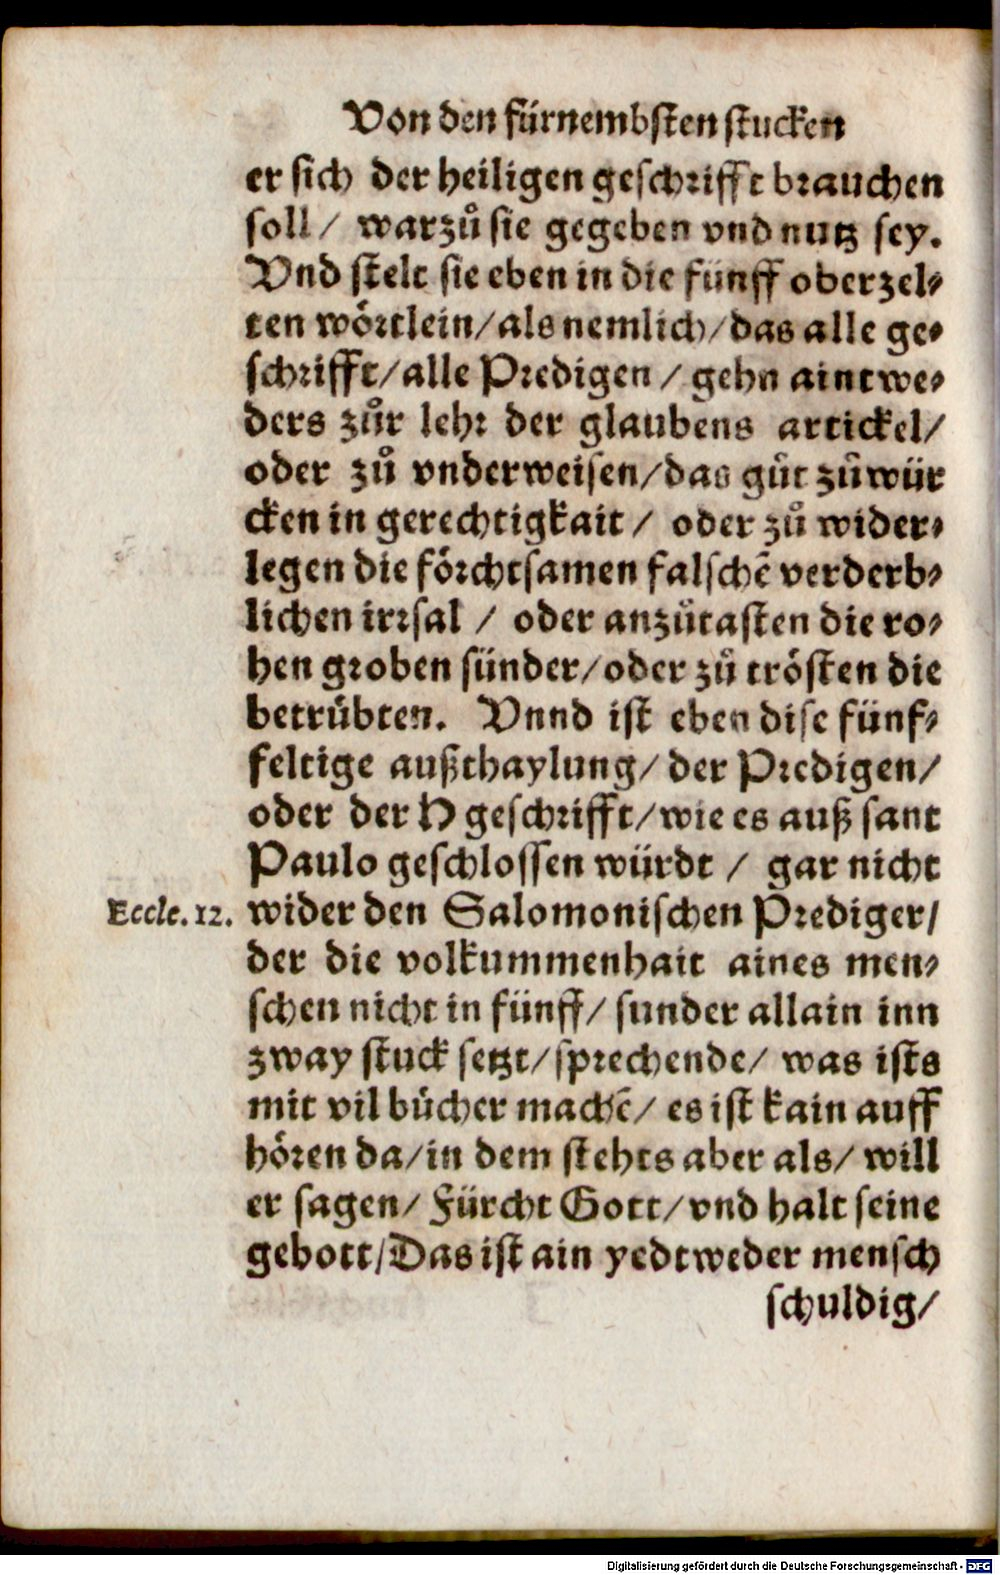 Von den fürnembsten stucken
er sich der heiligen geschrifft brauchen
soll / warzů sie gegeben vnd nutz sey.
Vnd stelt sie eben in die fünff oberzel⸗
ten wörtlein/als nemlich/das alle ge⸗
schrifft/alle Predigen / gehn aintwe⸗
ders zůr lehr der glaubens artickel/
oder zů vnderweisen/das gůt zůwür
cken in gerechtigkait / oder zů wider⸗
legen die förchtsamen falschē verderb⸗
lichen irrsal / oder anzůtasten die ro⸗
hen groben sünder/oder zů trösten die
betrůbten. Vnnd ist eben dise fünf⸗
feltige außthaylung/ der Predigen/
oder der H geschrifft/wie es auß sant
Paulo geschlossen würdt / gar nicht
Eccle. 12. wider den Salomonischen Prediger/
der die volkummenhait aines men⸗
schen nicht in fünff/ sunder allain inn
zway stuck setzt/sprechende/ was ists
mit vil bůcher machē/ es ist kain auff
hören da/in dem stehts aber als/ will
er sagen/ Fürcht Gott/vnd halt seine
gebott/Das ist ain yedtweder mensch
schuldig/
Digitalisierung gefördert durch die Deutsche Forschungsgemeinschaft - DFG